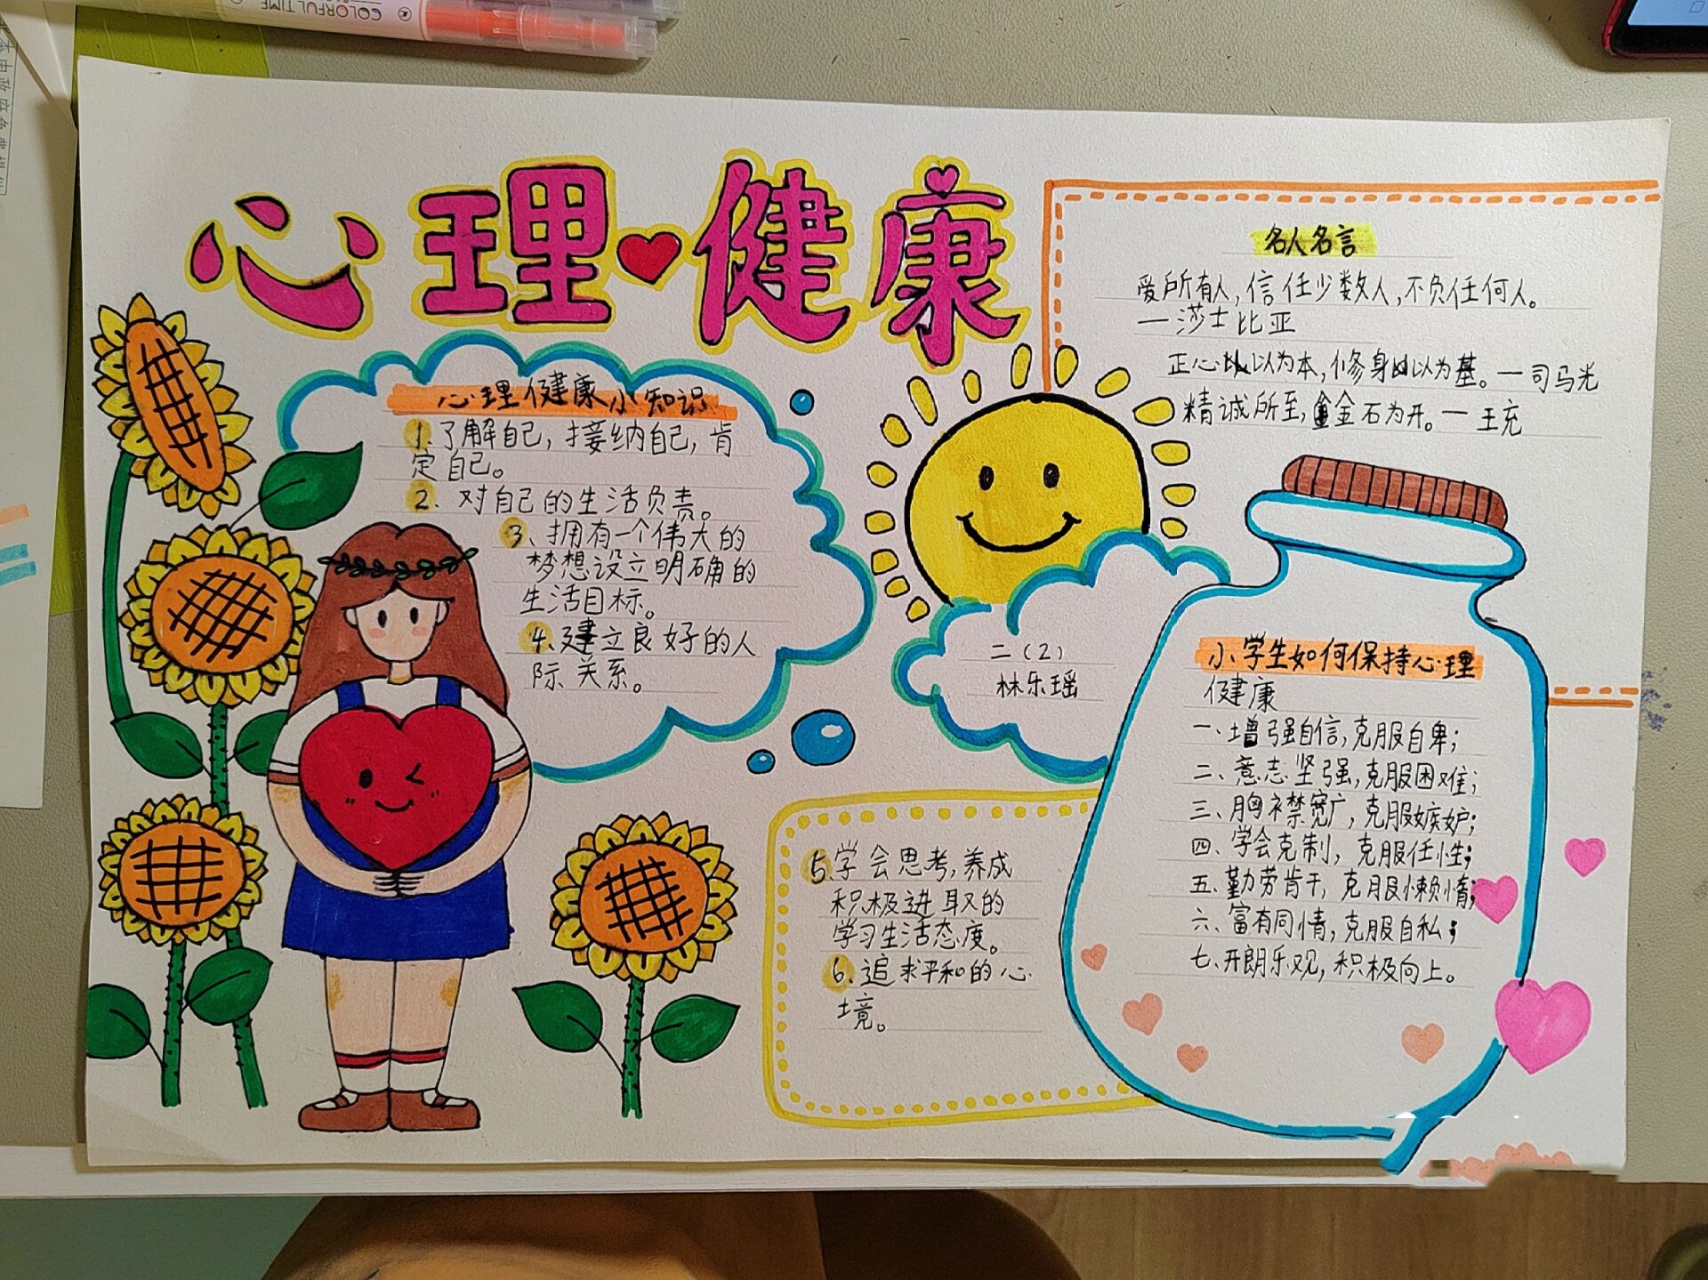 COLORFUL TIME
心理健康
名人名言
爱所有人，信任少数人，不负任何人。
—莎士比亚
正心以以为本，修身以以为基。—司马光
精诚所至，金金石为开。—王充
心理健康小知识
1.了解自己，接纳自己，肯
定自己。
2. 对自己的生活负责。
3、拥有一个伟大的
梦想设立明确的
生活目标。
4.建立良好的人
际关系。
二（2）
林乐瑶
5.学会思考，养成
积极进取的
学习生活态度。
6.追求平和的心
境。
小学生如何保持心理
健康
一、增强自信，克服自卑；
二、意志坚强，克服困难；
三、胸襟宽广，克服嫉妒；
四、学会克制，克服任性；
五、勤劳肯干，克服懒惰；
六、富有同情，克服自私；
七、开朗乐观，积极向上。